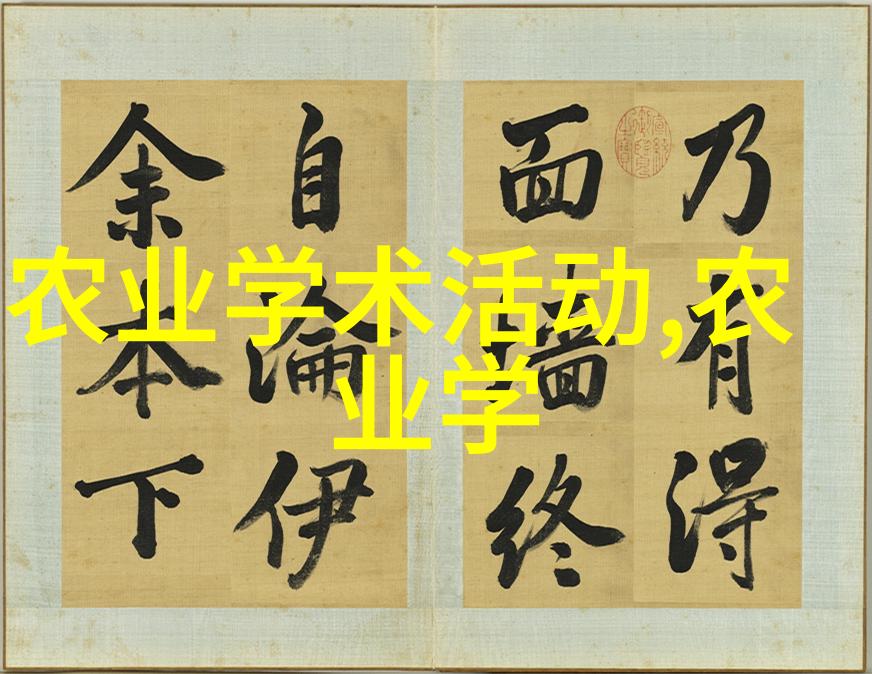 农业学术活动,农
业学
乃有得
面墻終
自淪伊
余本下